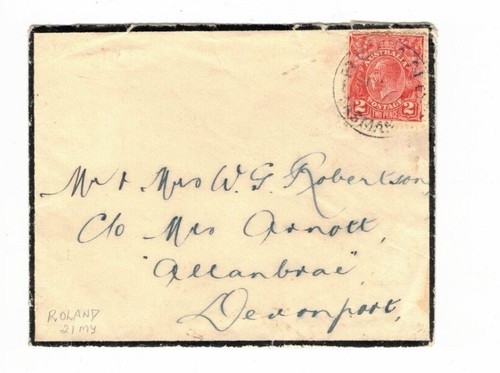 AUSTRALIA
POSTAGE
2 TWO PENCE 2
Mr & Mrs W. G. Robertson,
C/o Mrs Arnott,
"Allanbrae",
Devonport,
ROLAND
21 MY